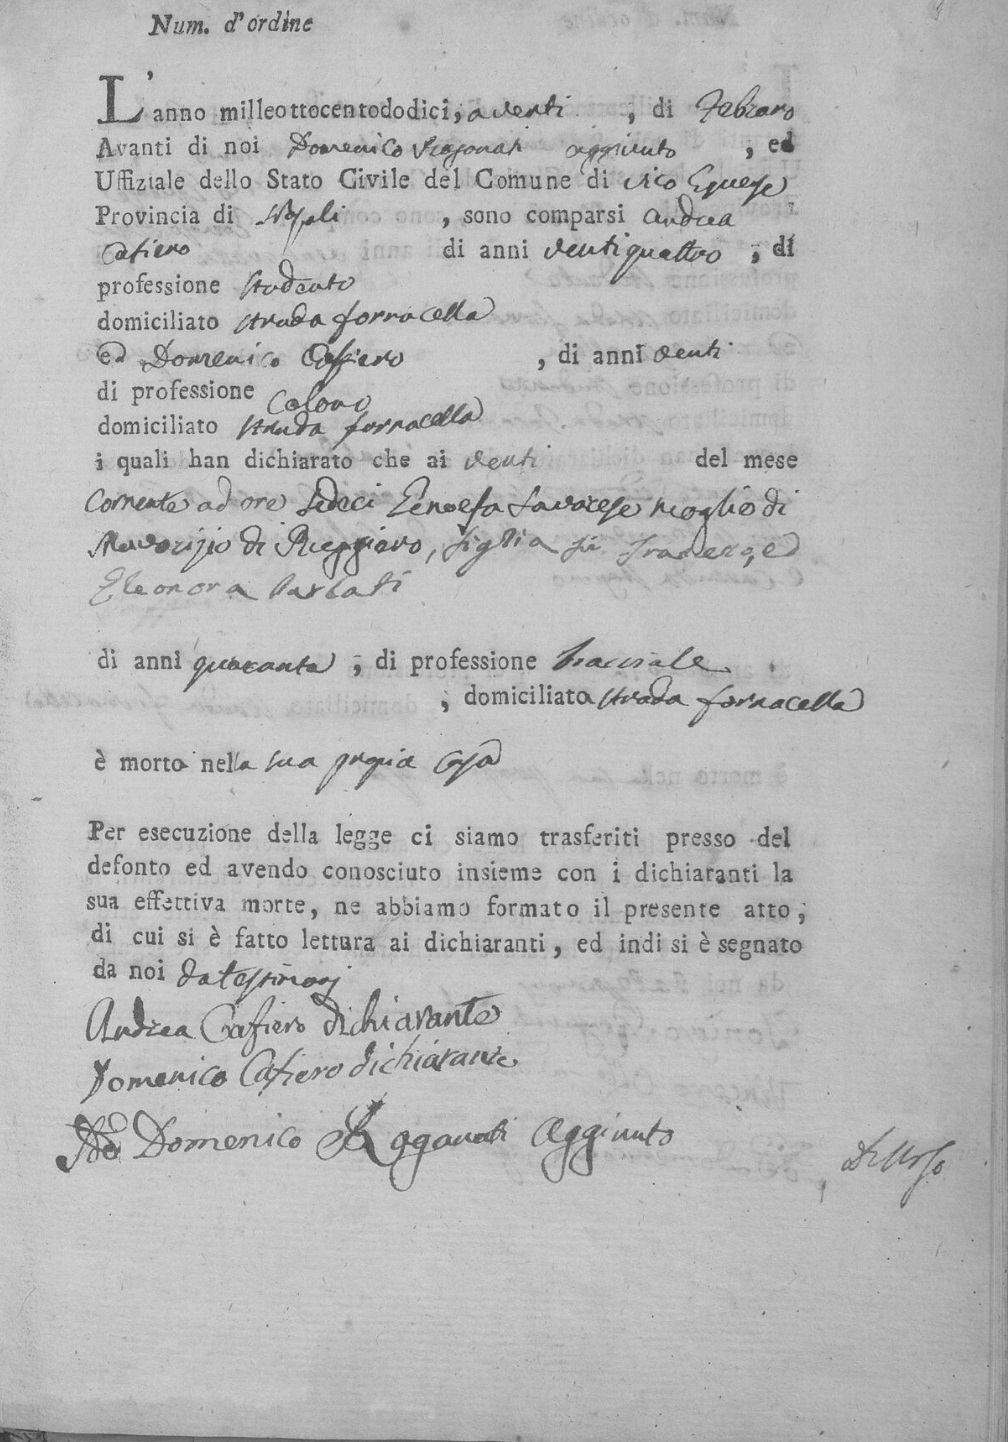 Num. d'ordine
L'anno milleottocentododici, a venti , di Febraro
Avanti di noi Domenico aggiunto , ed
Uffiziale dello Stato Civile del Comune di Vico Equense
Provincia di Napoli , sono comparsi Andrea
Cafiero di anni ventiquattro , di
professione studente
domiciliato strada fornacella
ed Domenico Cafiero , di anni venti
di professione Colono
domiciliato strada fornacella
i quali han dichiarato che ai venti del mese
Corrente ad ore sedeci Genoefa Savarese moglie di
Maorizio di Ruggiero, figlia di ed
Eleonora
di anni quaranta , di professione bracciale
, domiciliato strada fornacella
è morta nella sua propia Casa
Per esecuzione della legge ci siamo trasferiti presso del
defonto ed avendo conosciuto insieme con i dichiaranti la
sua effettiva morte, ne abbiamo formato il presente atto,
di cui si è fatto lettura ai dichiaranti, ed indi si è segnato
da noi da testimonj
Andrea Cafiero dichiarante
Domenico Cafiero dichiarante
Domenico aggiunto